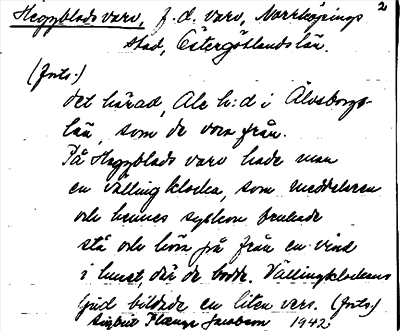 2
Heggblads varv, f.d. varv, Norrköpings
stad, Östergötlands län.
(Forts.)
det härad, Ale h:d i Älvsborgs-
län, som de voro från.
På Heggblads varv hade man
en vällingklocka, som meddelaren
och hennes syskon brukade
stå och höra på från en vind
i huset, där de bodde. Vällingklockans
ljud bildade en liten vers. (Forts.)
Jacobson 1942